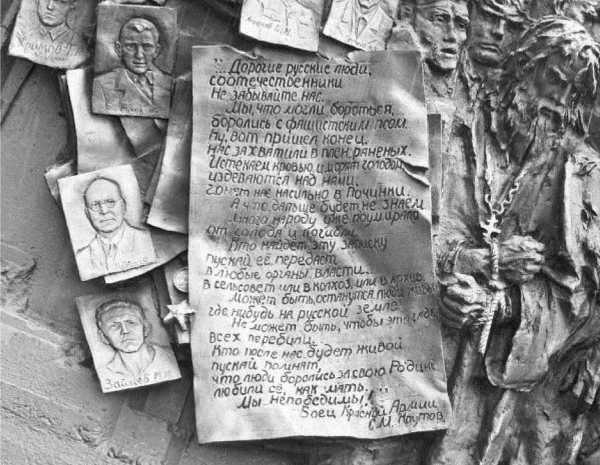 Дорогие русские люди,
соотечественники
Не забывайте нас.
Мы, что могли бороться,
боролись с фашистским псом.
Ну, вот пришел конец.
нас захватили в плен раненых.
Истекаем кровью и морят голодом,
издеваются над нами,
гонят нас насильно в Починки.
А что дальше будет не знаем
Много народу уже поумирало
от голода и погибли
Кто найдет эту записку
пускай её передаст
в любые органы власти...
в сельсовет или в колхоз, или в архив.
Может быть, останутся люди
где нибудь на русской земле.
Не может быть, чтобы эти
всех перебили.
Кто после нас будет живой
пускай помнят,
что люди боролись за свою Родину
любили её, как мать.
Мы непобедимы!
Боец Красной Армии
С.М. Крутов.
Зайцев